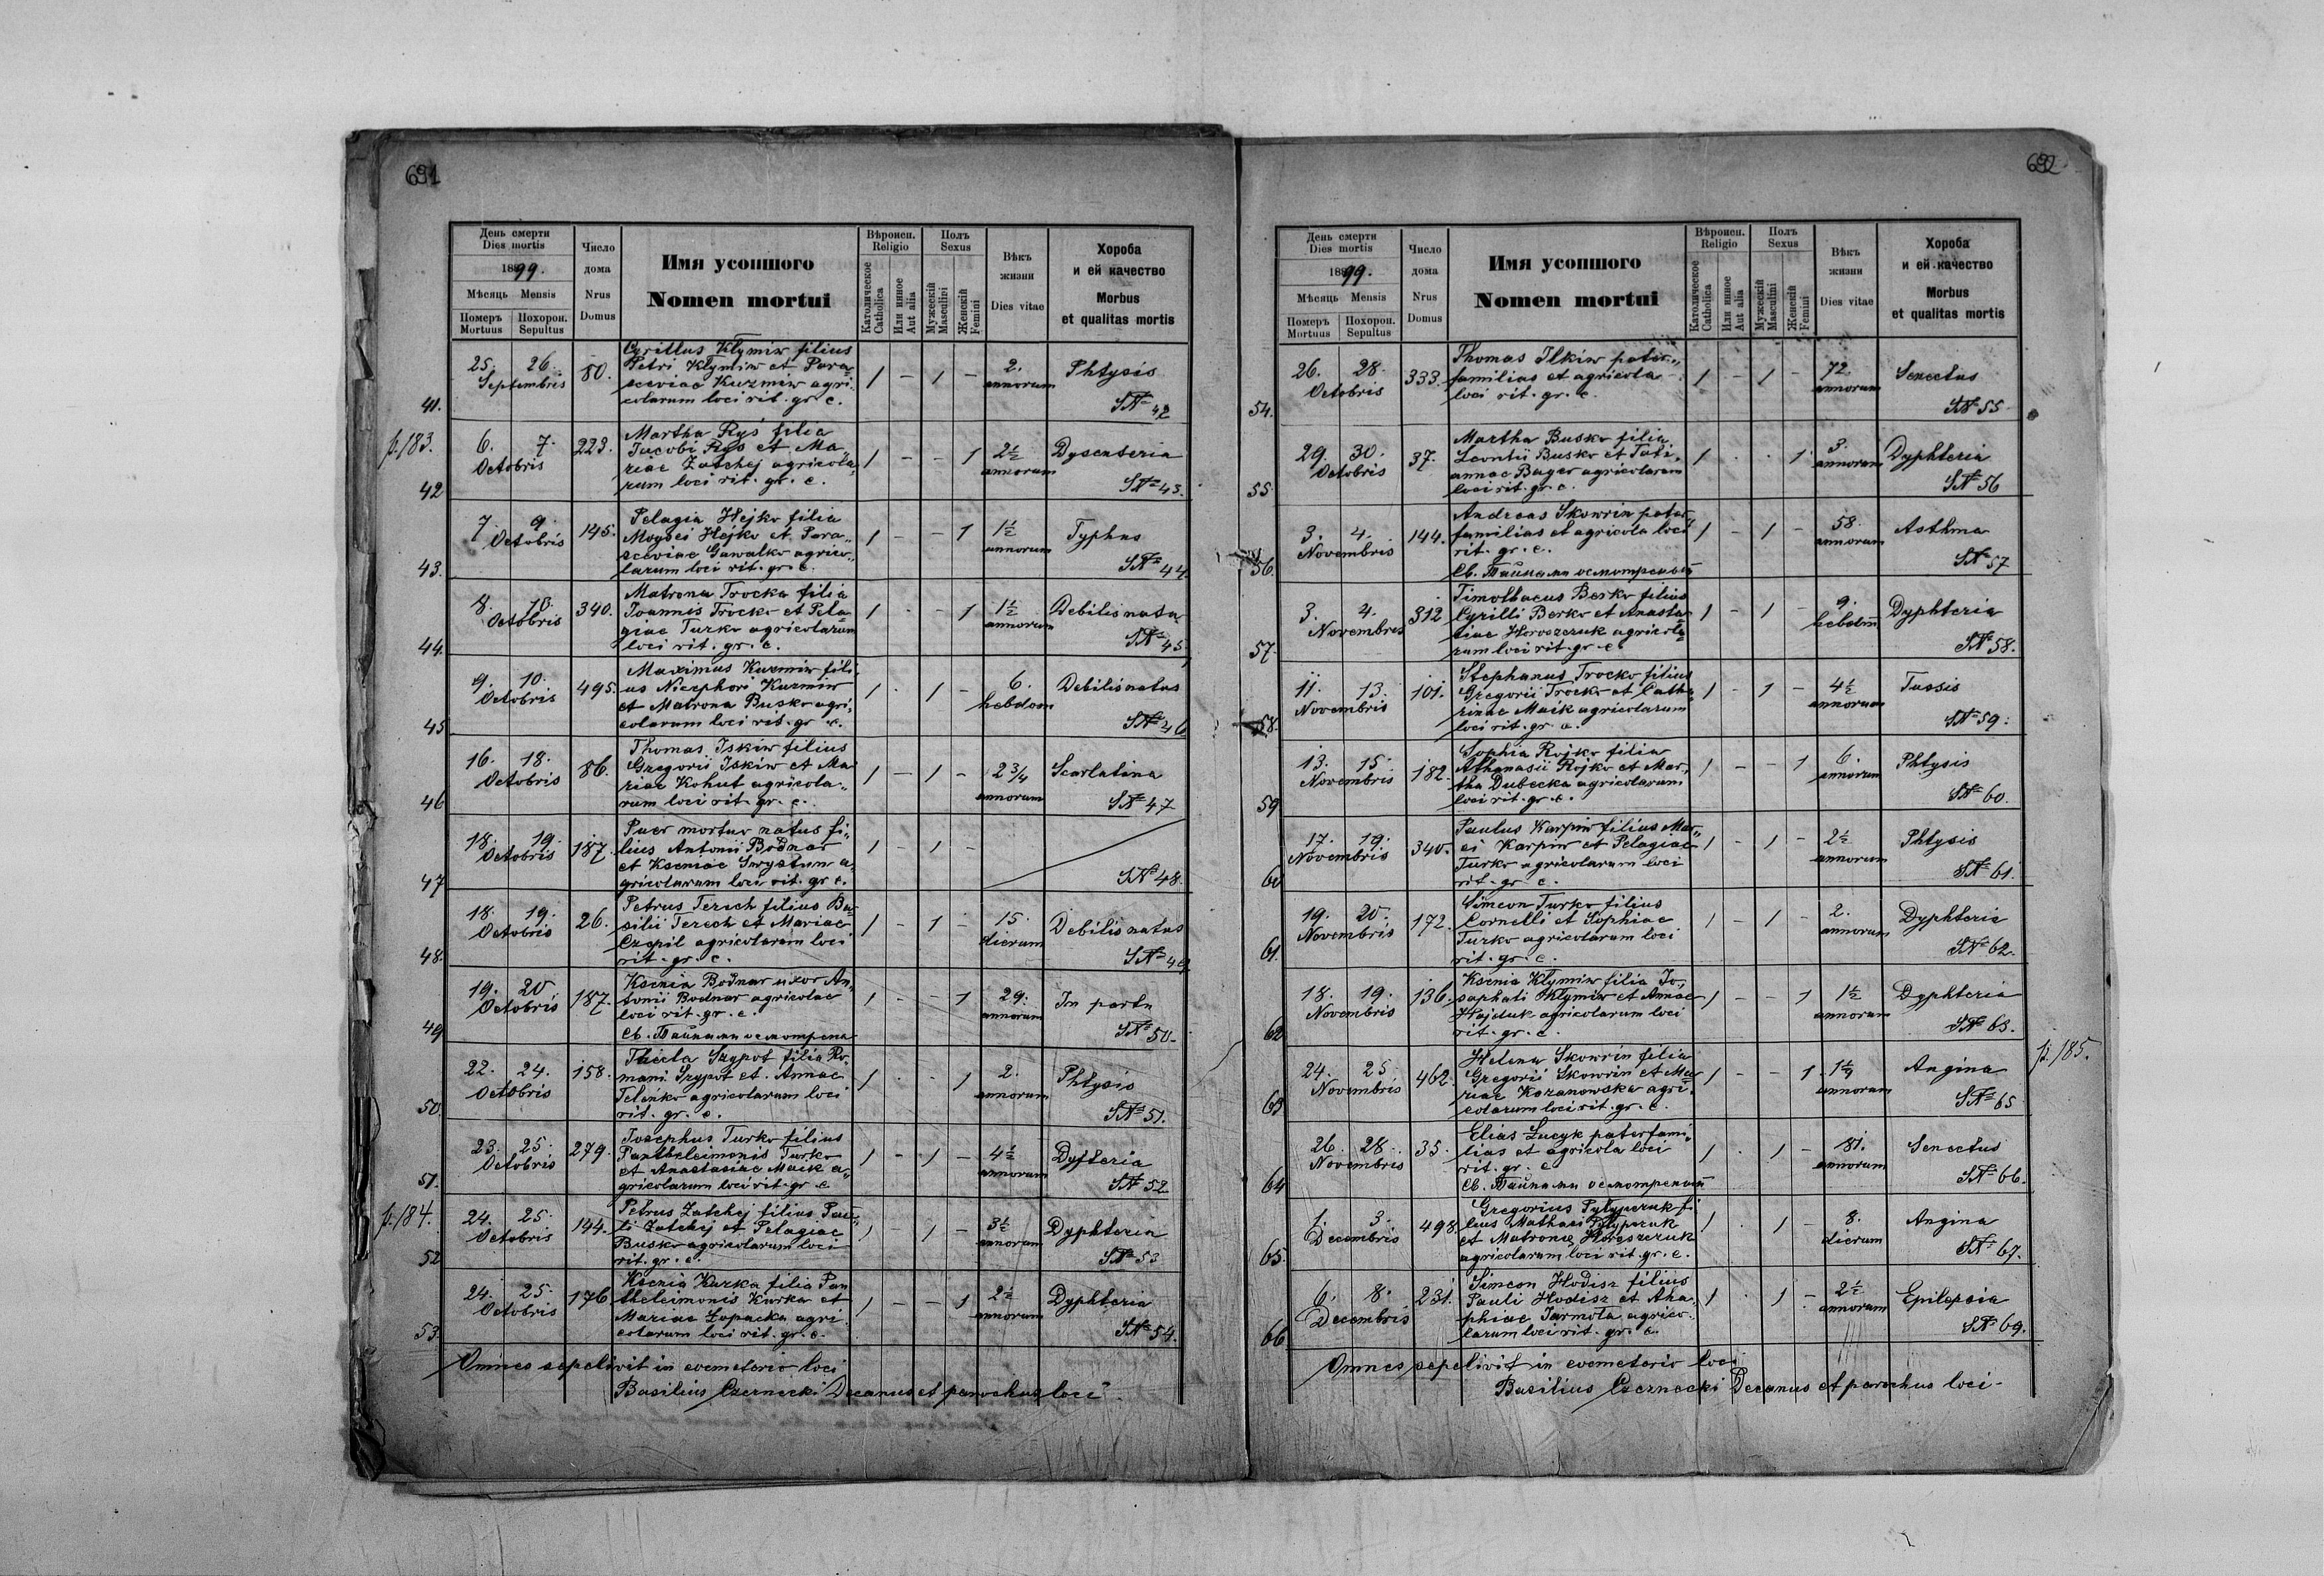 691
День смерти
Dies mortis
1899.
Мѣсяць Mensis
Померъ Mortuus
Похорон. Sepultus
Число дома
Nrus Domus
Имя усопшого
Nomen mortui
Вѣроисп.
Religio
Католическое Catholica
Или инное Aut alia
Полъ
Sexus
Мужескій Masculini
Женскій Femini
Вѣкъ жизни
Dies vitae
Хороба
и ей качество
Morbus
et qualitas mortis
41. 25. 26. Septembris 80.
Cyrillus Klymiw filius
Petri Klymiw et Para=
sceviae Kuzmiw agri-
colarum loci rit. gr. c.
1 - 1 - 2. annorum Phtysis
SN 42
p. 183.
42 6. 7. Octobris 223.
Martha Ryś filia
Jacobi Ryś et Ma„
riae Zatchej agricola„
rum loci rit. gr. c.
1 - - 1 2½ annorum Dysenteria
SN 43.
43. 7. 9. Octobris 145.
Pelagia Hejko filia
Moysei Hejko et Para„
sceviae Gawalko agrico„
larum loci rit. gr. c.
1 - - 1 1½ annorum Typhus
SN 44
44. 8. 10. Octobris 340.
Matrona Trocka filia
Joannis Trocko et Pela=
giae Turko agricolarum
loci rit. gr. c.
1 - - 1 1½ annorum Debilis nata
SN 45
45 9. 10. Octobris 495.
Maximus Kuzmiw fili„
us Nicephori Kuzmiw
et Matrona Busko agri„
colarum loci rit. gr. c.
1 . 1 - 6. hebdom Debilis natus
SN 46
46 16. 18. Octobris 86.
Thomas Iskiw filius
Gregorii Iskiw et Ma
riae Kohut agricola„
rum loci rit. gr. c.
1 - 1 - 2¾ annorum Scarlatina
SN 47
47 18. 19. Octobris 187.
Puer mortuo natus fi„
lius Antonii Bodnar
et Kseniae Swystun a„
gricolarum loci rit. gr. c.
1 - 1 -
SN 48.
48. 18. 19. Octobris 26.
Petrus Terech filius Ba=
silii Terech et Mariae
Czepil agricolarum loci
rit. gr. c.
1 - 1 - 15. dierum Debilis natus
SN 49
49 19. 20 Octobris 187.
Ksenia Bodnar uxor An„
tonii Bodnar agricolae
loci rit. gr. c.
Св. Тайнами осмотрена
1 - - 1 29. annorum In partu
SN 50.
50. 22. 24. Octobris 158.
Thecla Szypot filia Ro„
mani Szypot et Annae
Telenko agricolarum loci
rit. gr. c.
1 . - 1 2. annorum Phtysis
SN 51.
51. 23. 25. Octobris 279.
Josephus Turko filius
Pantheleimonis Turko
et Anastasiae Maik a„
gricolarum loci rit. gr. c
1 - 1 - 4½ annorum Dyfteria
SN 52
p. 184.
52 24. 25. Octobris 144.
Petrus Zatchej filius Pau„
li Zatchej et Pelagiae
Busko agricolarum loci
rit. gr. c.
1 1 - 3½ annorum Dyphteria
SN 53
53. 24. 25. Octobris 176
Ksenia Kurka filia Pan
theleimonis Kurka et
Mariae Łopacka agri„
colarum loci rit. gr. c.
1 - - 1 2½ annorum Dyphteria
SN 54.
Omnes sepelivit in coemeterio loci
Basilius Czernecki Decanus et parochus loci
692
День смерти
Dies mortis
1899.
Мѣсяць Mensis
Померъ Mortuus
Похорон. Sepultus
Число дома
Nrus Domus
Имя усопшого
Nomen mortui
Вѣроисп.
Religio
Католическое Catholica
Или инное Aut alia
Полъ
Sexus
Мужескій Masculini
Женскій Femini
Вѣкъ жизни
Dies vitae
Хороба
и ей качество
Morbus
et qualitas mortis
54. 26. 28. Octobris 333.
Thomas Ilkiw pater„
familias et agricola
loci rit. gr. c.
1 - 1 - 72 annorum Senectus
SN 55
55 29. 30. Octobris 37.
Martha Busko filia
Leontii Busko et Tati„
annae Bager agricolarum
loci rit. gr. c.
1 . . 1 3. annorum Dyphteria
SN 56
56. 3. 4. Novembris 144.
Andreas Skowrin pater„
familias et agricola loci
rit. gr. c.
Св. Тайнами осмотреный
1 - 1 - 58. annorum Asthma
SN 57
57. 3. 4. Novembris 312
Timotheus Berko filius
Cyrilli Berko et Anasta=
siae Horoszczuk agricola=
rum loci rit. gr. c
1 - 1 - 9. hebdom Dyphteria
SN 58.
58. 11. 13. Novembris 101.
Stephanus Trocko filius
Gregorii Trocko et Catha„
rinae Maik agricolarum
loci rit. gr. c.
1 - 1 - 4½ annorum Tussis
SN 59.
59 13. 15. Novembris 182.
Sophia Rojko filia
Athanasii Rojko et Mar„
tha Dubecka agricolarum
loci rit. gr. c.
1 - - 1 6. annorum Phtysis
SN 60.
60 17. 19. Novembris 340.
Paulus Karpiw filius Mar„
ci Karpiw et Pelagiae
Turko agricolarum loci
rit. gr. c.
1 - 1 - 2½ annorum Phtysis
SN 61.
61. 19. 20. Novembris 172.
Simeon Turko filius
Cornelli et Sophiae
Turko agricolarum loci
rit. gr. c.
1 - 1 - 2. annorum Dyphteria
SN 62.
62 18. 19. Novembris 136.
Ksenia Klymiw filia Jo„
saphati Klymiw et Annae
Hajduk agricolarum loci
rit. gr. c.
1 - - 1 1½ annorum Dyphteria
SN 63.
p. 185.
63 24. 25 Novembris 462.
Helena Skowrin filia
Gregorii Skowrin et Ma=
riae Kazanowska agri„
colarum loci rit. gr. c.
1 - - 1 annorum Angina
SN 65
64 26. 28. Novembris 35.
Elias Łucyk paterfami„
lias et agricola loci
rit. gr. c
Св. Тайнами осмотреный
1 . 1 - 81. annorum Senectus
SN 66.
65. 1. 3. Decembris 498
Gregorius Pylypczuk fi
lius Mathaei Pylypczuk
et Matronae Horoszczuk
agricolarum loci rit. gr. c.
1 . 1 - 8. dierum Angina
SN 67.
66 6. 8. Decembris 231.
Simeon Hodisz filius
Pauli Hodisz et Aha„
phiae Jarmota agrico„
larum loci rit. gr. c.
1 . 1 - 2½ annorum Epilepsia
SN 69.
Omnes sepelivit in coemeterio loci
Basilius Czernecki Decanus et parochus loci